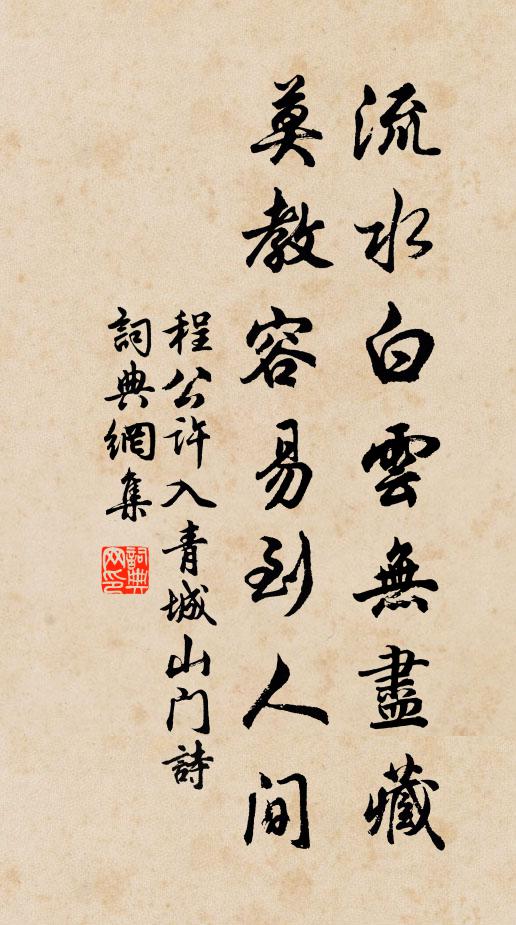 流水白雲無盡藏
莫教容易到人間
程公許入青城山門詩
詞典網集
詞典网印